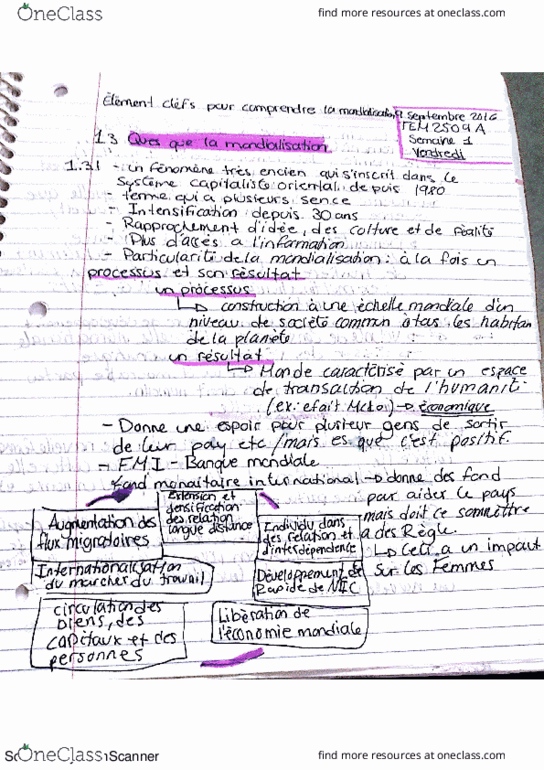 OneClass
find more resources at oneclass.com
Élement clefs pour comprendre la mondialisation
9 septembre 2016
FEM2509A
Semaine 1
Vendredi
1.3 Ques que la mondialisation
1.3.1 - un fénomène très encien qui s'inscrit dans le
système capitaliste oriental depuis 1980
- terme qui a plusieurs sence
- Intensification depuis 30 ans
- Rapprochement d'idée, des culture et de réalités
- Plus d'accès a l'information
- Particularité de la mondialisation : à la fois un
processus et son résultat
un processus
↳ construction à une échelle mondiale d'un
niveau de société commun à tous les habitan
de la planète
un résultat
↳ Monde caractérisé par un espace
de transaction de l'humanité
(ex: efait Mcdo) → économique
- Donne une espoir pour plusieur gens de sortir
de leur pay etc / mais es que c'est positif.
- F.M.I - Banque mondiale
fond monaitaire international → donne des fond
pour aider le pays
mais doit ce somettre
a des Règle.
↳ Ceci a un impact
sur les Femmes
Extension et
densification
des relation
langue distance
Augmentation des
flux migratoires
Endividu dans
des relation et
d'interdépendence
Internationalisation
du marcher du travail
Développement de
Rapide de NTIC
circulation des
biens, des
capitaux et des
personnes
Libération de
l'économie mondiale
OneClass
Scanner
find more resources at oneclass.com